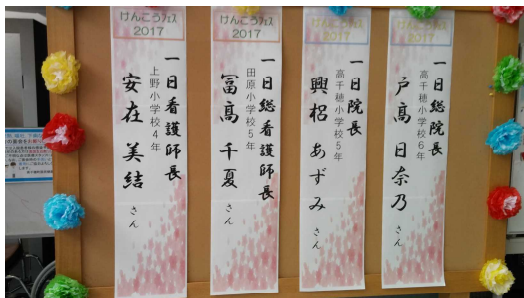 げんこうフェス
2017
一日総院長
高千穂小学校6年
戸髙 日奈乃 さん
けんこうフェス
2017
一日院長
高千穂小学校5年
興梠 あずみ さん
けんこうフェス
2017
一日総看護師長
田原小学校5年
冨髙 千夏 さん
けんこうフェス
2017
一日看護師長
上野小学校4年
安在 美結 さん